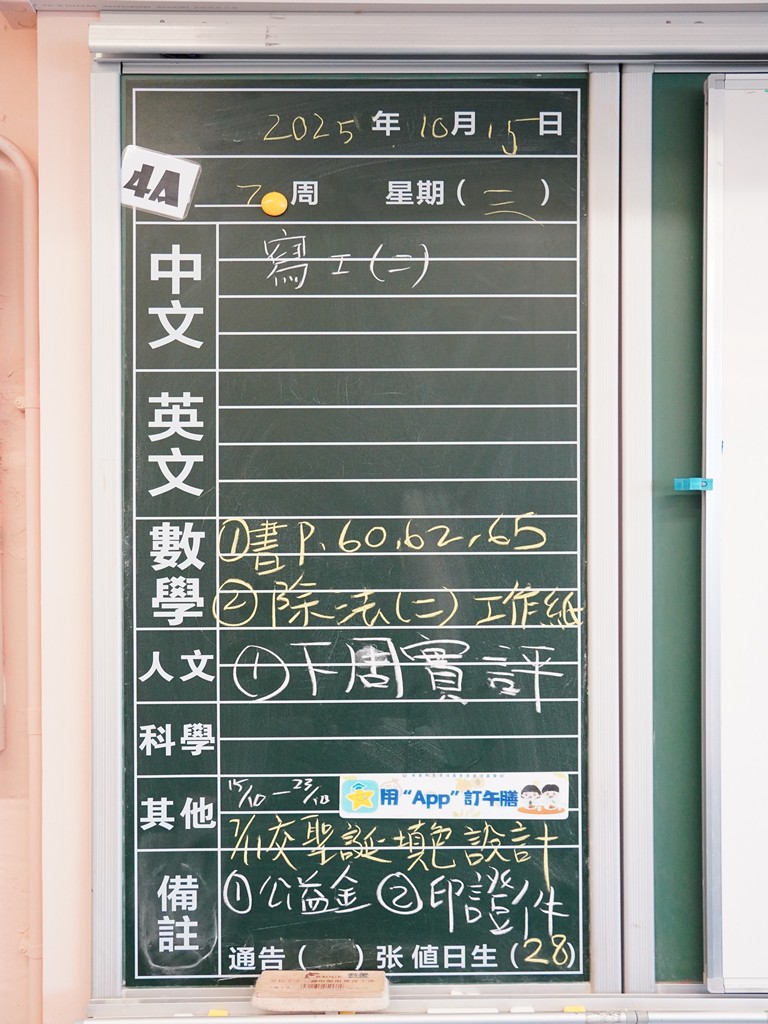 2025 年 10 月 15 日
4A
7 周 星期 ( 三 )
中文 寫工(二)
英文
數學 ①書P.60,62,65
②除法(二)工作紙
人文 ①下周實評
科學
其他 15/10—23/10 用“App”訂午膳
7/11交聖誕填色設計
備註 ①公益金 ②印證件
通告 ( ) 张 值日生 (28)